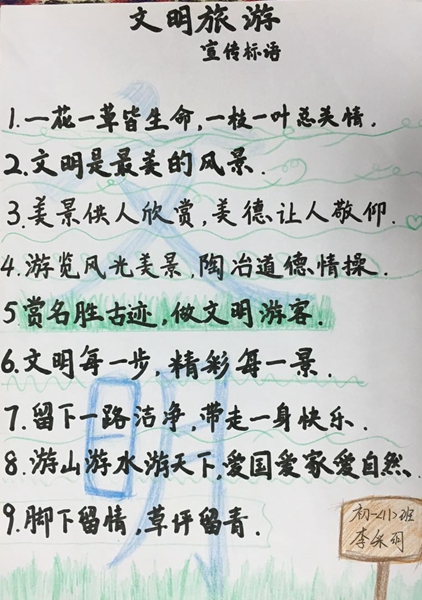 文明旅游
宣传标语
1.一花一草皆生命,一枝一叶总关情.
2.文明是最美的风景.
3.美景供人欣赏,美德让人敬仰.
4.游览风光美景,陶冶道德情操.
5赏名胜古迹,做文明游客.
6.文明每一步,精彩每一景.
7.留下一路洁净,带走一身快乐.
8.游山游水游天下,爱国爱家爱自然.
9.脚下留情,草坪留青.
文明
初一<11>班